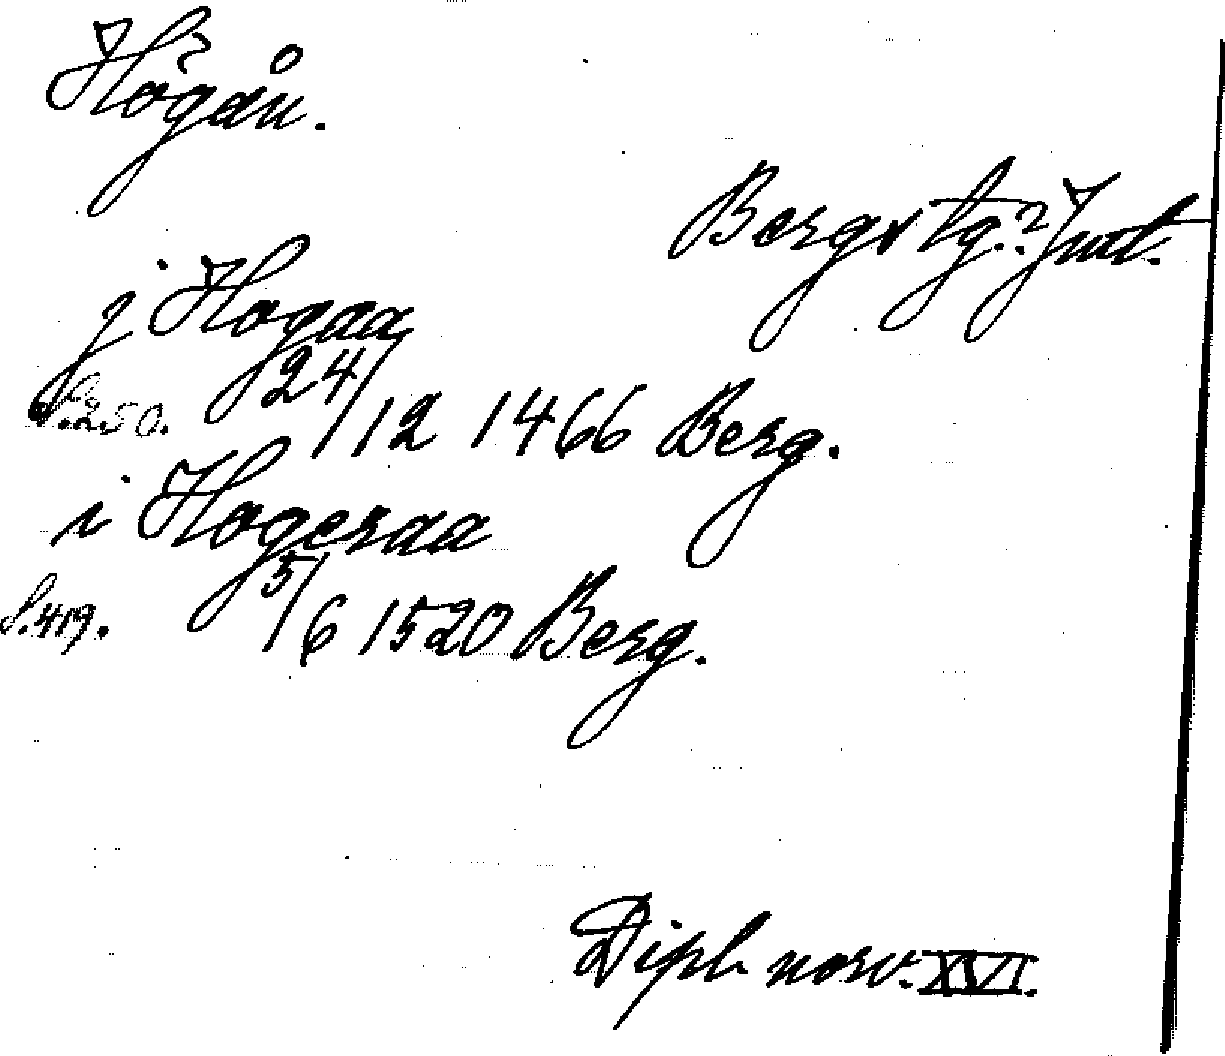 Högån.
Bergs tg.? Jmt.
j Hogaa
S. 250. 24/12 1466 Berg.
i Hogeraa
S. 419. 5/6 1520 Berg.
Dipl. norv. XVI.